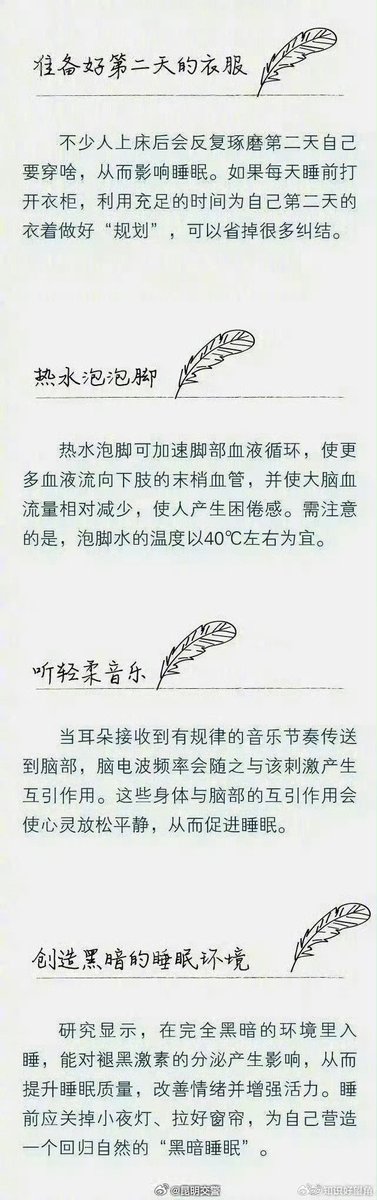 准备好第二天的衣服
不少人上床后会反复琢磨第二天自己
要穿啥，从而影响睡眠。如果每天睡前打
开衣柜，利用充足的时间为自己第二天的
衣着做好“规划”，可以省掉很多纠结。
热水泡泡脚
热水泡脚可加速脚部血液循环，使更
多血液流向下肢的末梢血管，并使大脑血
流量相对减少，使人产生困倦感。需注意
的是，泡脚水的温度以40℃左右为宜。
听轻柔音乐
当耳朵接收到有规律的音乐节奏传送
到脑部，脑电波频率会随之与该刺激产生
互引作用。这些身体与脑部的互引作用会
使心灵放松平静，从而促进睡眠。
创造黑暗的睡眠环境
研究显示，在完全黑暗的环境里入
睡，能对褪黑激素的分泌产生影响，从而
提升睡眠质量，改善情绪并增强活力。睡
前应关掉小夜灯、拉好窗帘，为自己营造
一个回归自然的“黑暗睡眠”。
@昆明交警